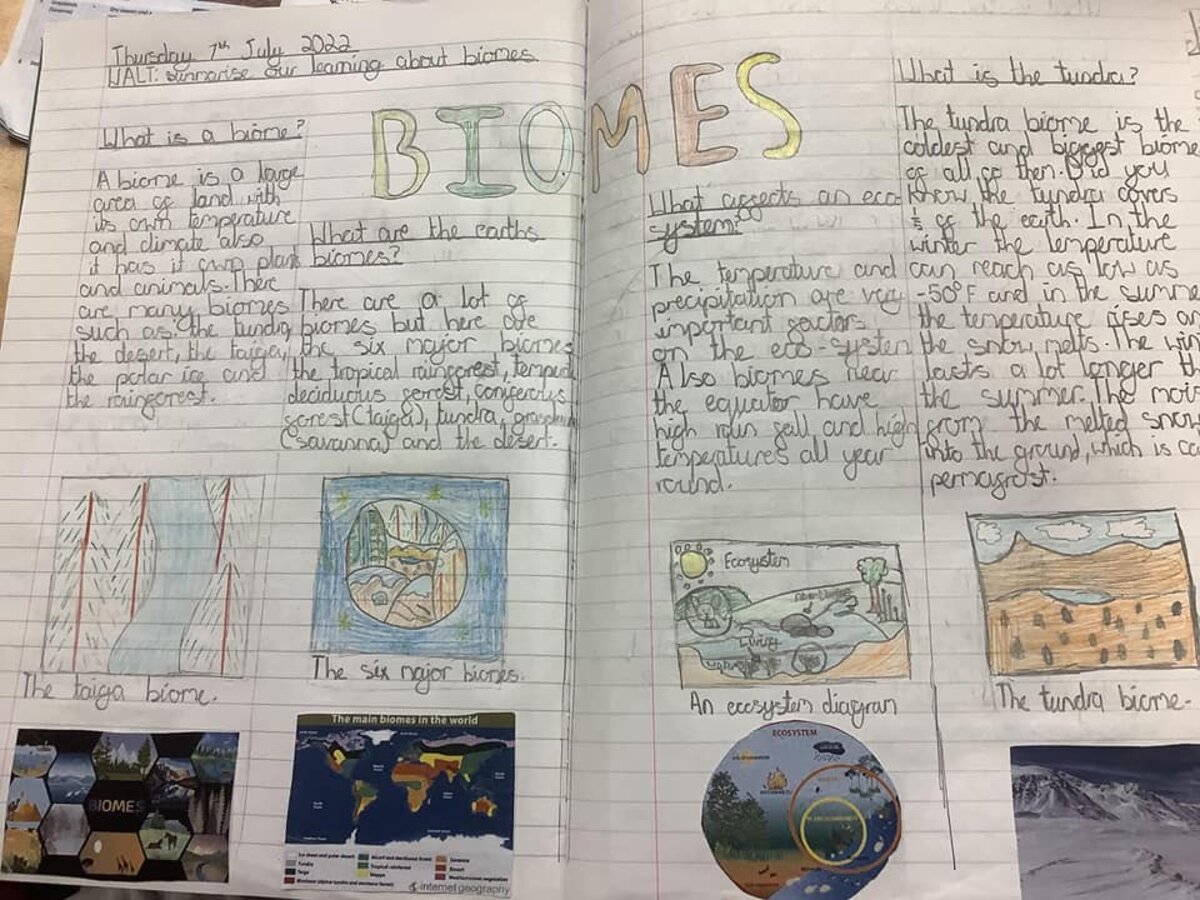 Thursday 7th July 2022
WALT: summarise our learning about biomes.
BIOMES
What is a biome?
A biome is a large
area of land with
its own temperature
and climate also
it has it own plants
and animals. There
are many biomes
such as the tundra,
the desert, the taiga,
the polar ice and
the rainforest.
What are the earths
biomes?
There are a lot of
biomes but here are
the six major biomes
the tropical rainforest,
deciduous forest, coniferous
forest (taiga), tundra,
(savanna) and the desert.
What affects an eco-
system?
The temperature and
precipitation are very
important factors
on the eco-system
Also biomes near
the equator have
high rain fall and high
temperatures all year
round.
What is the tundra?
The tundra biome is the
coldest and biggest biome
of all of then. Did you
know the tundra covers
⅕ of the earth. In the
winter the temperature
can reach as low as
-50°F and in the
the temperature rises
the snow melts. The
lasts a lot longer
the summer. The
from the melted snow
into the ground, which is
permafrost.
The taiga biome.
The six major biomes.
Ecosystem
Living
An ecosystem diagram
The tundra biome.
BIOMES
The main biomes in the world
Tundra
Taiga
Tropical rainforest
Steppe
Savanna
Desert
internet geography
ECOSYSTEM